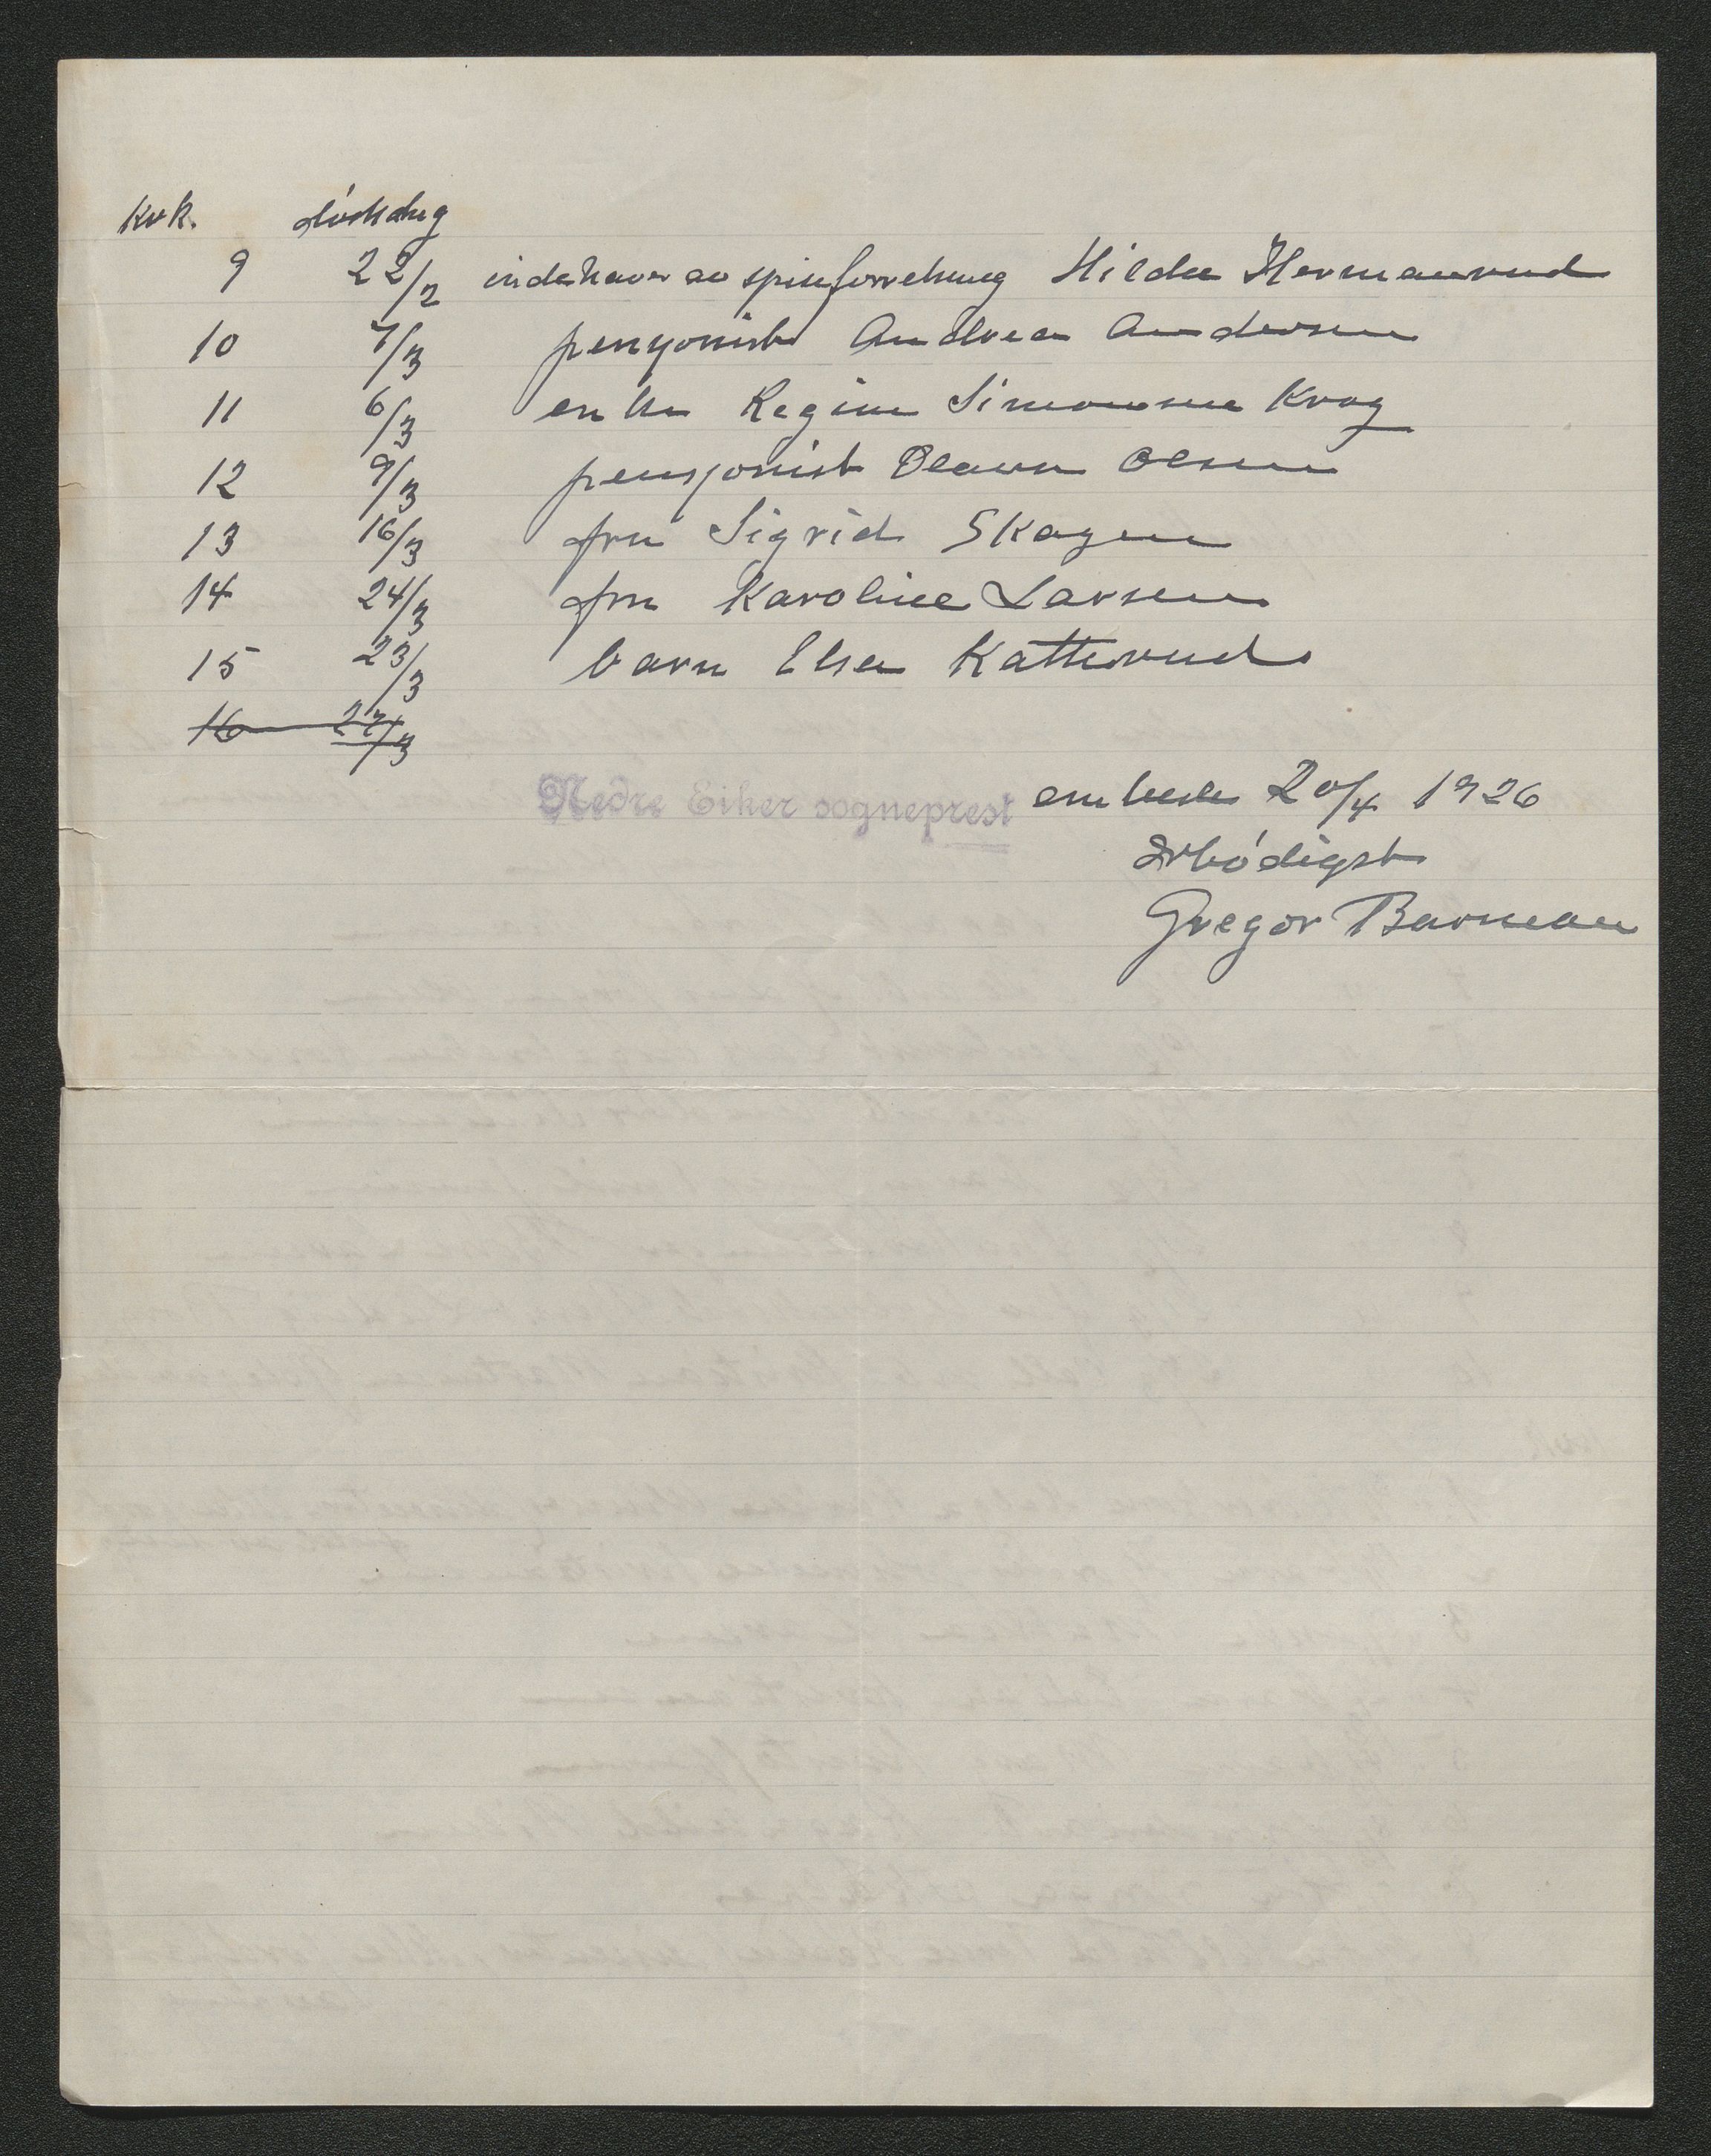 Kvk. dødsdag
9 22/2 indehaver av spiseforretning Hilda Hermanrud
10 7/3 pensjonist Andrea Andersen
11 6/3 enke Regine Simonsen Krog
12 9/3 pensjonist Olava Olsen
13 16/3 fru Sigrid Skagen
14 24/3 fru Karoline Larsen
15 23/3 barn Elsa Katterud
16 27/3
Nedre Eiker sogneprest embede 20/4 1926
Ærbødigst
Gregor Barman